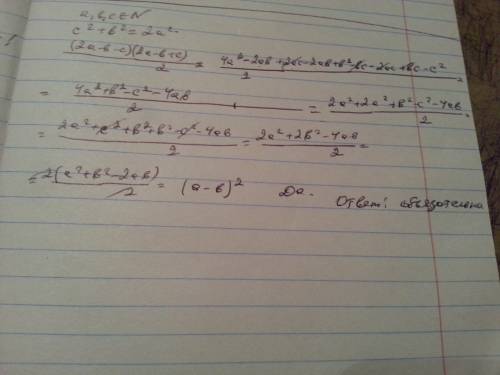 a,b,c ∈ N
c² + b² = 2a²
(2a-b-c)(2a-b+c) / 2 = (4a² - 2ab + 2ac - 2ab + b² - bc - 2ac + bc - c²) / 2 =
= (4a² + b² - c² - 4ab) / 2 = (2a² + 2a² + b² - c² - 4ab) / 2 =
= (2a² + c² + b² + b² - c² - 4ab) / 2 = (2a² + 2b² - 4ab) / 2 =
= 2(a² + b² - 2ab) / 2 = (a-b)² Да.
Ответ: обязательна